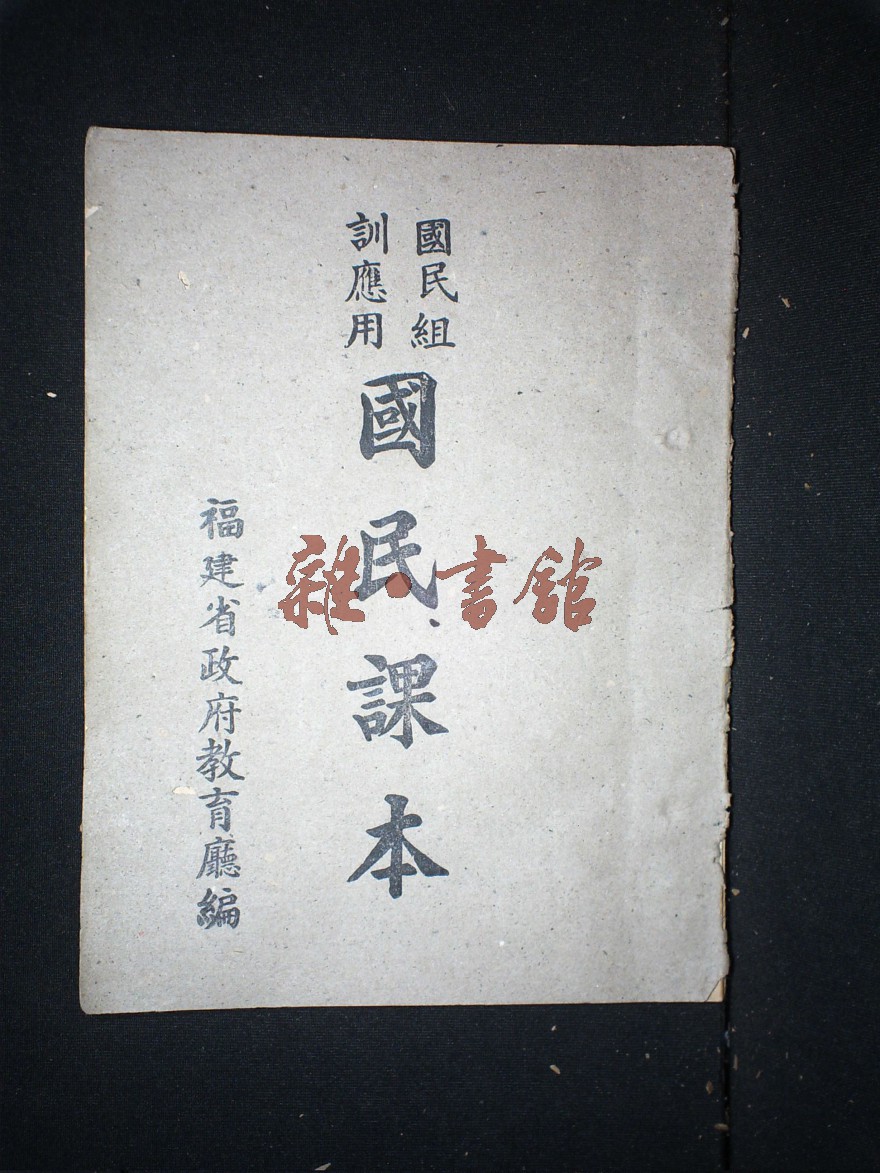 國民組
訓應用
國民課本
福建省政府教育廳編
雜·書館